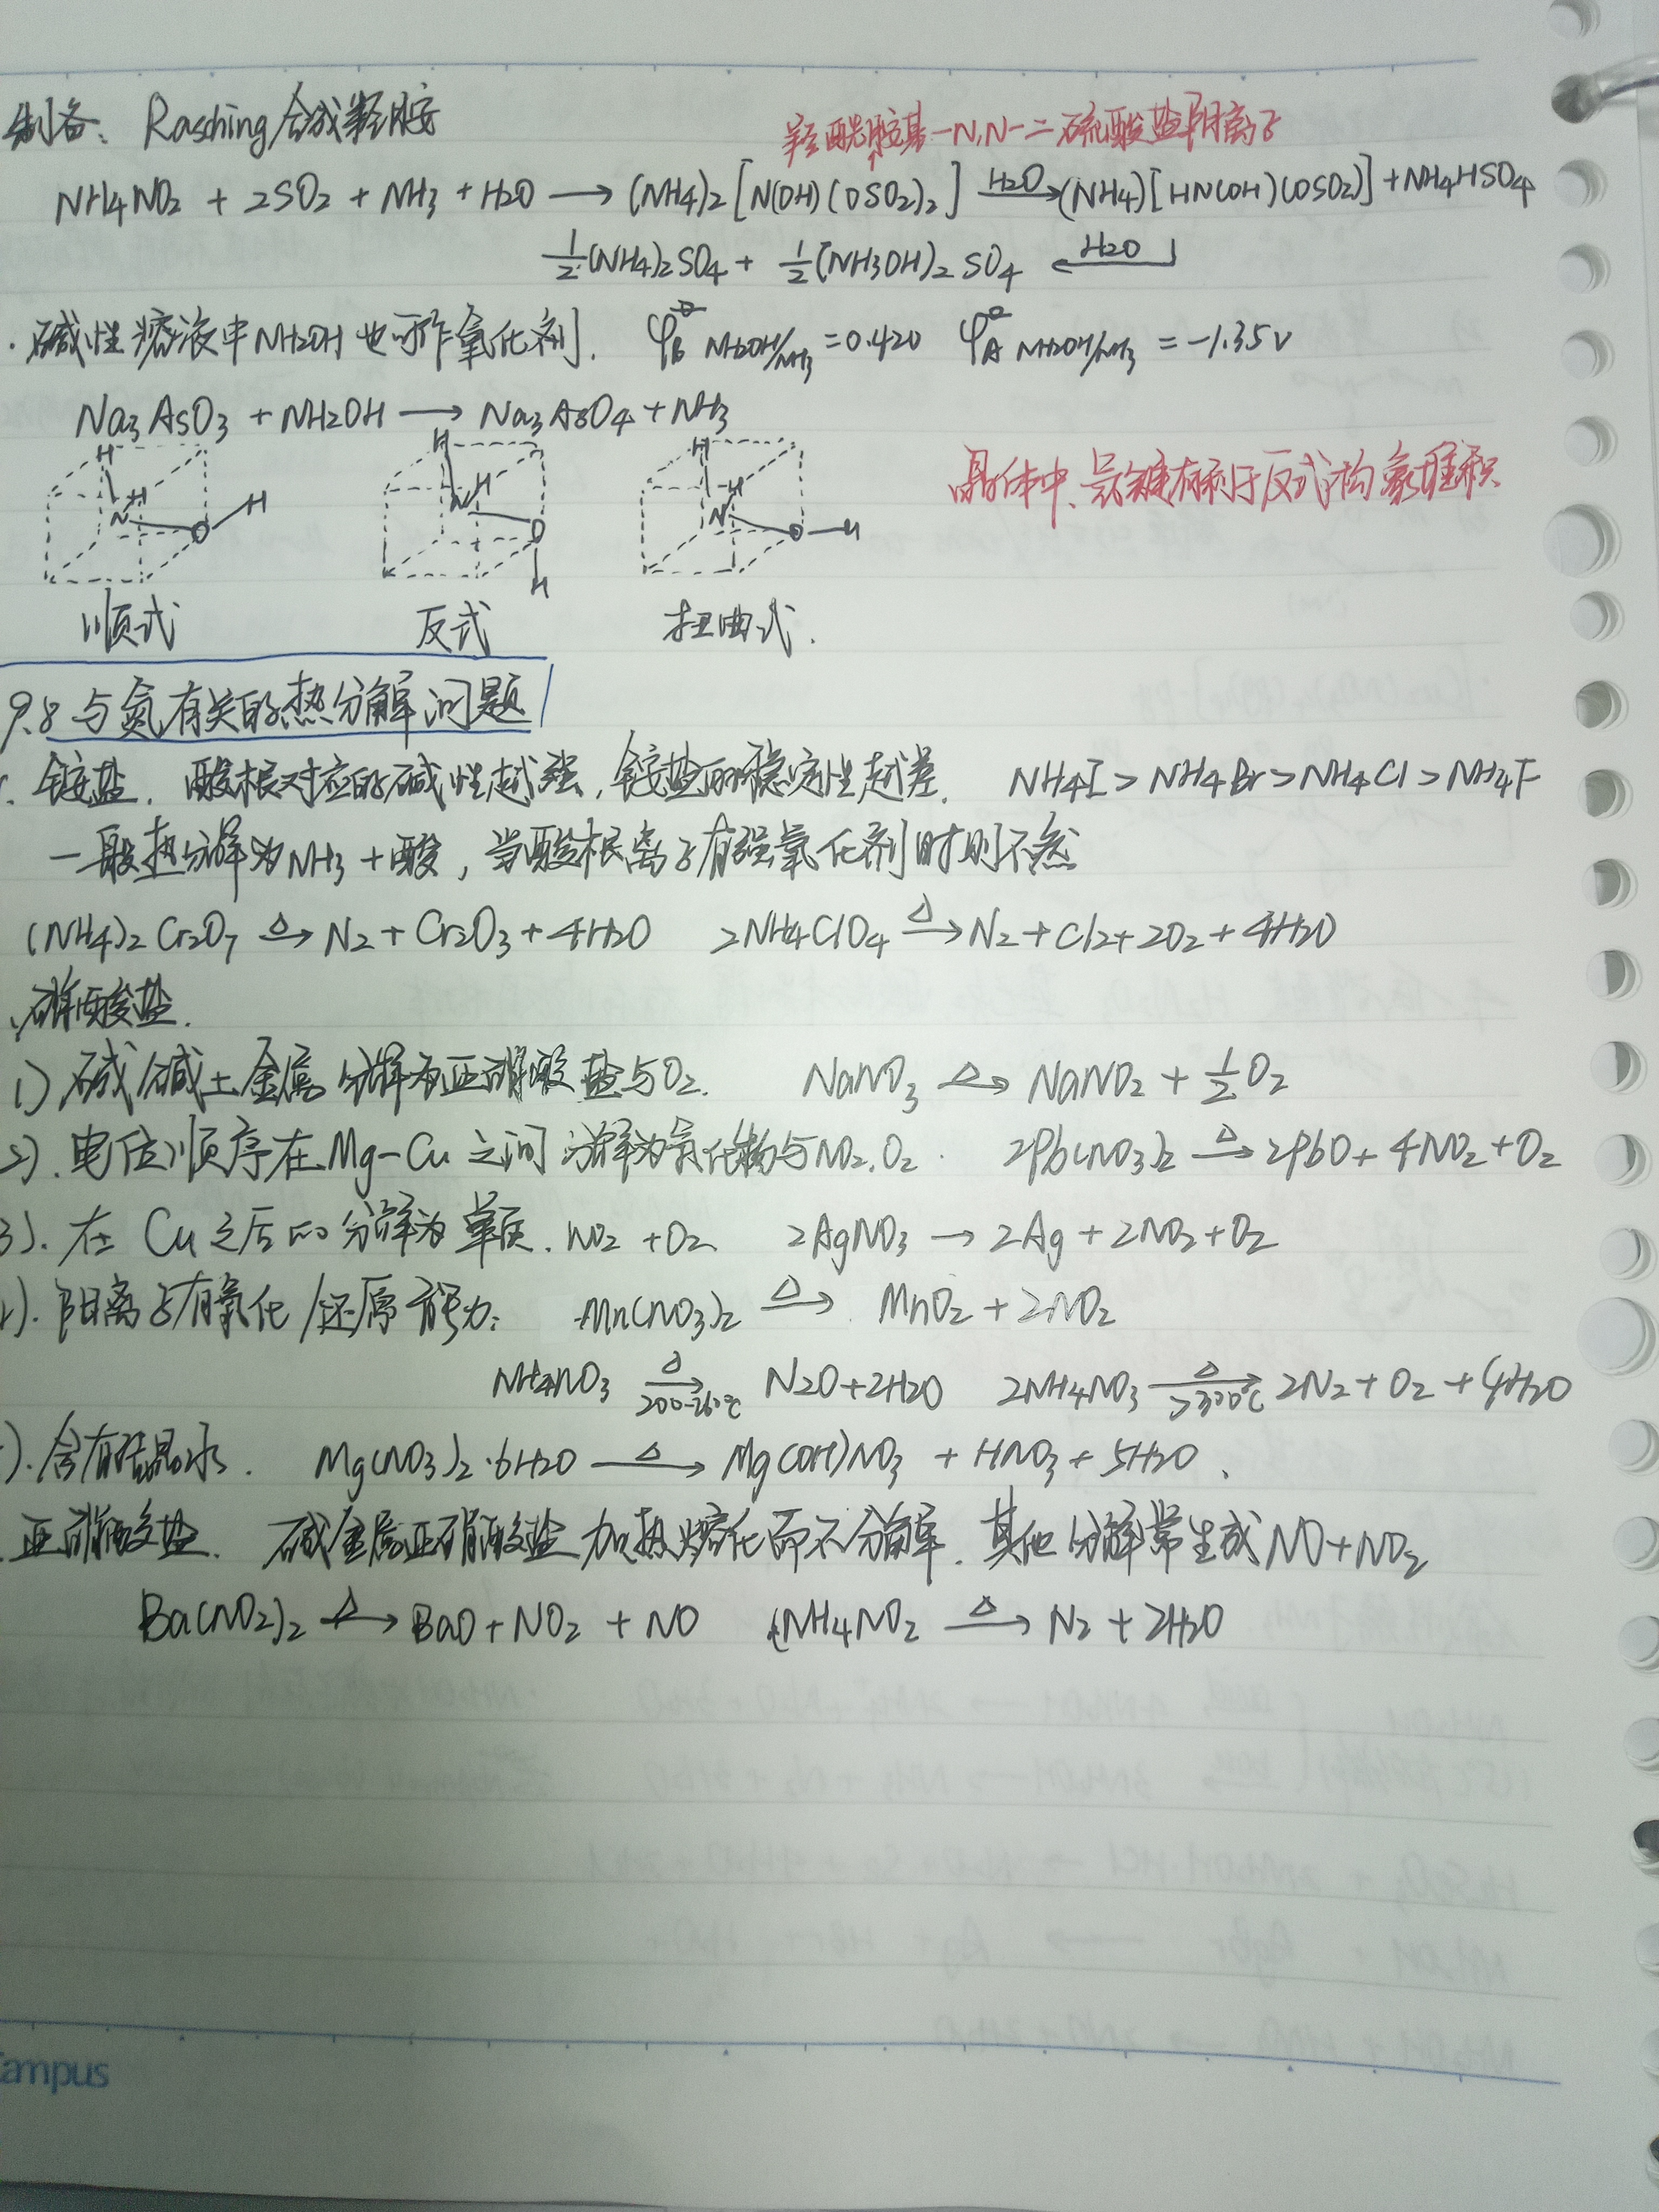 制备: Rasching合成羟胺
羟酰胺基-N,N-二硫酸盐阴离子
NH4NO2 + 2SO2 + NH3 + H2O → (NH4)2[N(OH)(OSO2)2] —H2O→ (NH4)[HN(OH)(OSO2)] + NH4HSO4
½(NH4)2SO4 + ½(NH3OH)2SO4 ←H2O—
· 碱性溶液中NH2OH也可作氧化剂. φ⊖B NH2OH/NH3 = 0.420 φ⊖A NH2OH/NH3 = -1.35V
Na3AsO3 + NH2OH → Na3AsO4 + NH3
晶体中、氢键有利于反式构象堆积
H H N O H
H H N O H
H H N O H
顺式 反式 扭曲式.
9.8 与氮有关的热分解问题
铵盐. 酸根对应的碱性越强,铵盐的稳定性越差. NH4I > NH4Br > NH4Cl > NH4F
一般热分解为NH3+酸, 当酸根离子有强氧化剂时则不然
(NH4)2Cr2O7 —△→ N2 + Cr2O3 + 4H2O 2NH4ClO4 —△→ N2 + Cl2 + 2O2 + 4H2O
硝酸盐.
1) 碱/碱土金属分解为亚硝酸盐与O2. NaNO3 —△→ NaNO2 + ½O2
2). 电位顺序在Mg-Cu之间 分解为氧化物与NO2.O2. 2Pb(NO3)2 —△→ 2PbO + 4NO2 + O2
3). 在Cu之后的分解为单质. NO2 + O2 2AgNO3 → 2Ag + 2NO2 + O2
). 阳离子有氧化/还原能力: Mn(NO3)2 —△→ MnO2 + 2NO2
NH4NO3 —△ 200-260℃→ N2O + 2H2O 2NH4NO3 —△ >300℃→ 2N2 + O2 + 4H2O
). 含有结晶水. Mg(NO3)2·6H2O —△→ Mg(OH)NO3 + HNO3 + 5H2O.
亚硝酸盐. 碱金属亚硝酸盐加热熔化而不分解. 其他分解常生成NO+NO2
Ba(NO2)2 —△→ BaO + NO2 + NO NH4NO2 —△→ N2 + 2H2O
ampus